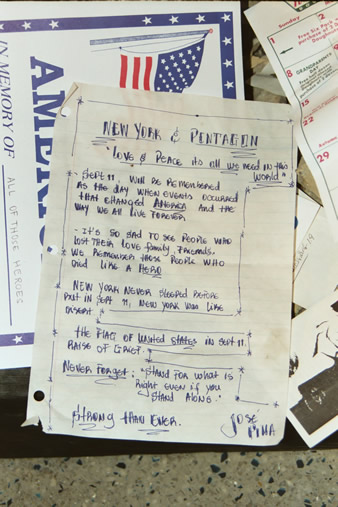 NEW YORK & PENTAGON
"LOVE & PEACE its all we need in this
World"
- SEPT 11, WILL BE REMEMBERED
AS THE DAY WHEN EVENTS OCCURRED
THAT CHANGED AMERICA AND THE
WAY WE ALL LIVE FOREVER
- IT'S SO SAD TO SEE PEOPLE WHO
LOST THEIR LOVE family, FRIENDS.
WE REMEMBER THOSE PEOPLE WHO
DIED LIKE A HERO
NEW YORK NEVER SLEEPED BEFORE
BUT IN SEPT 11, NEW YORK WAS LIKE
DESERT.
THE FLAG OF UNITED STATES IN SEPT 11.
RAISE OF GRIEF.
NEVER FORGET: "STAND FOR WHAT IS
Right EVEN if you
STAND ALONE."
STRONG THAN EVER.
JOSE
PINA
IN MEMORY OF ALL OF THOSE HEROES
Sunday
1
2
8
GRANDPARENTS
DAY
15
22
Autumn
29